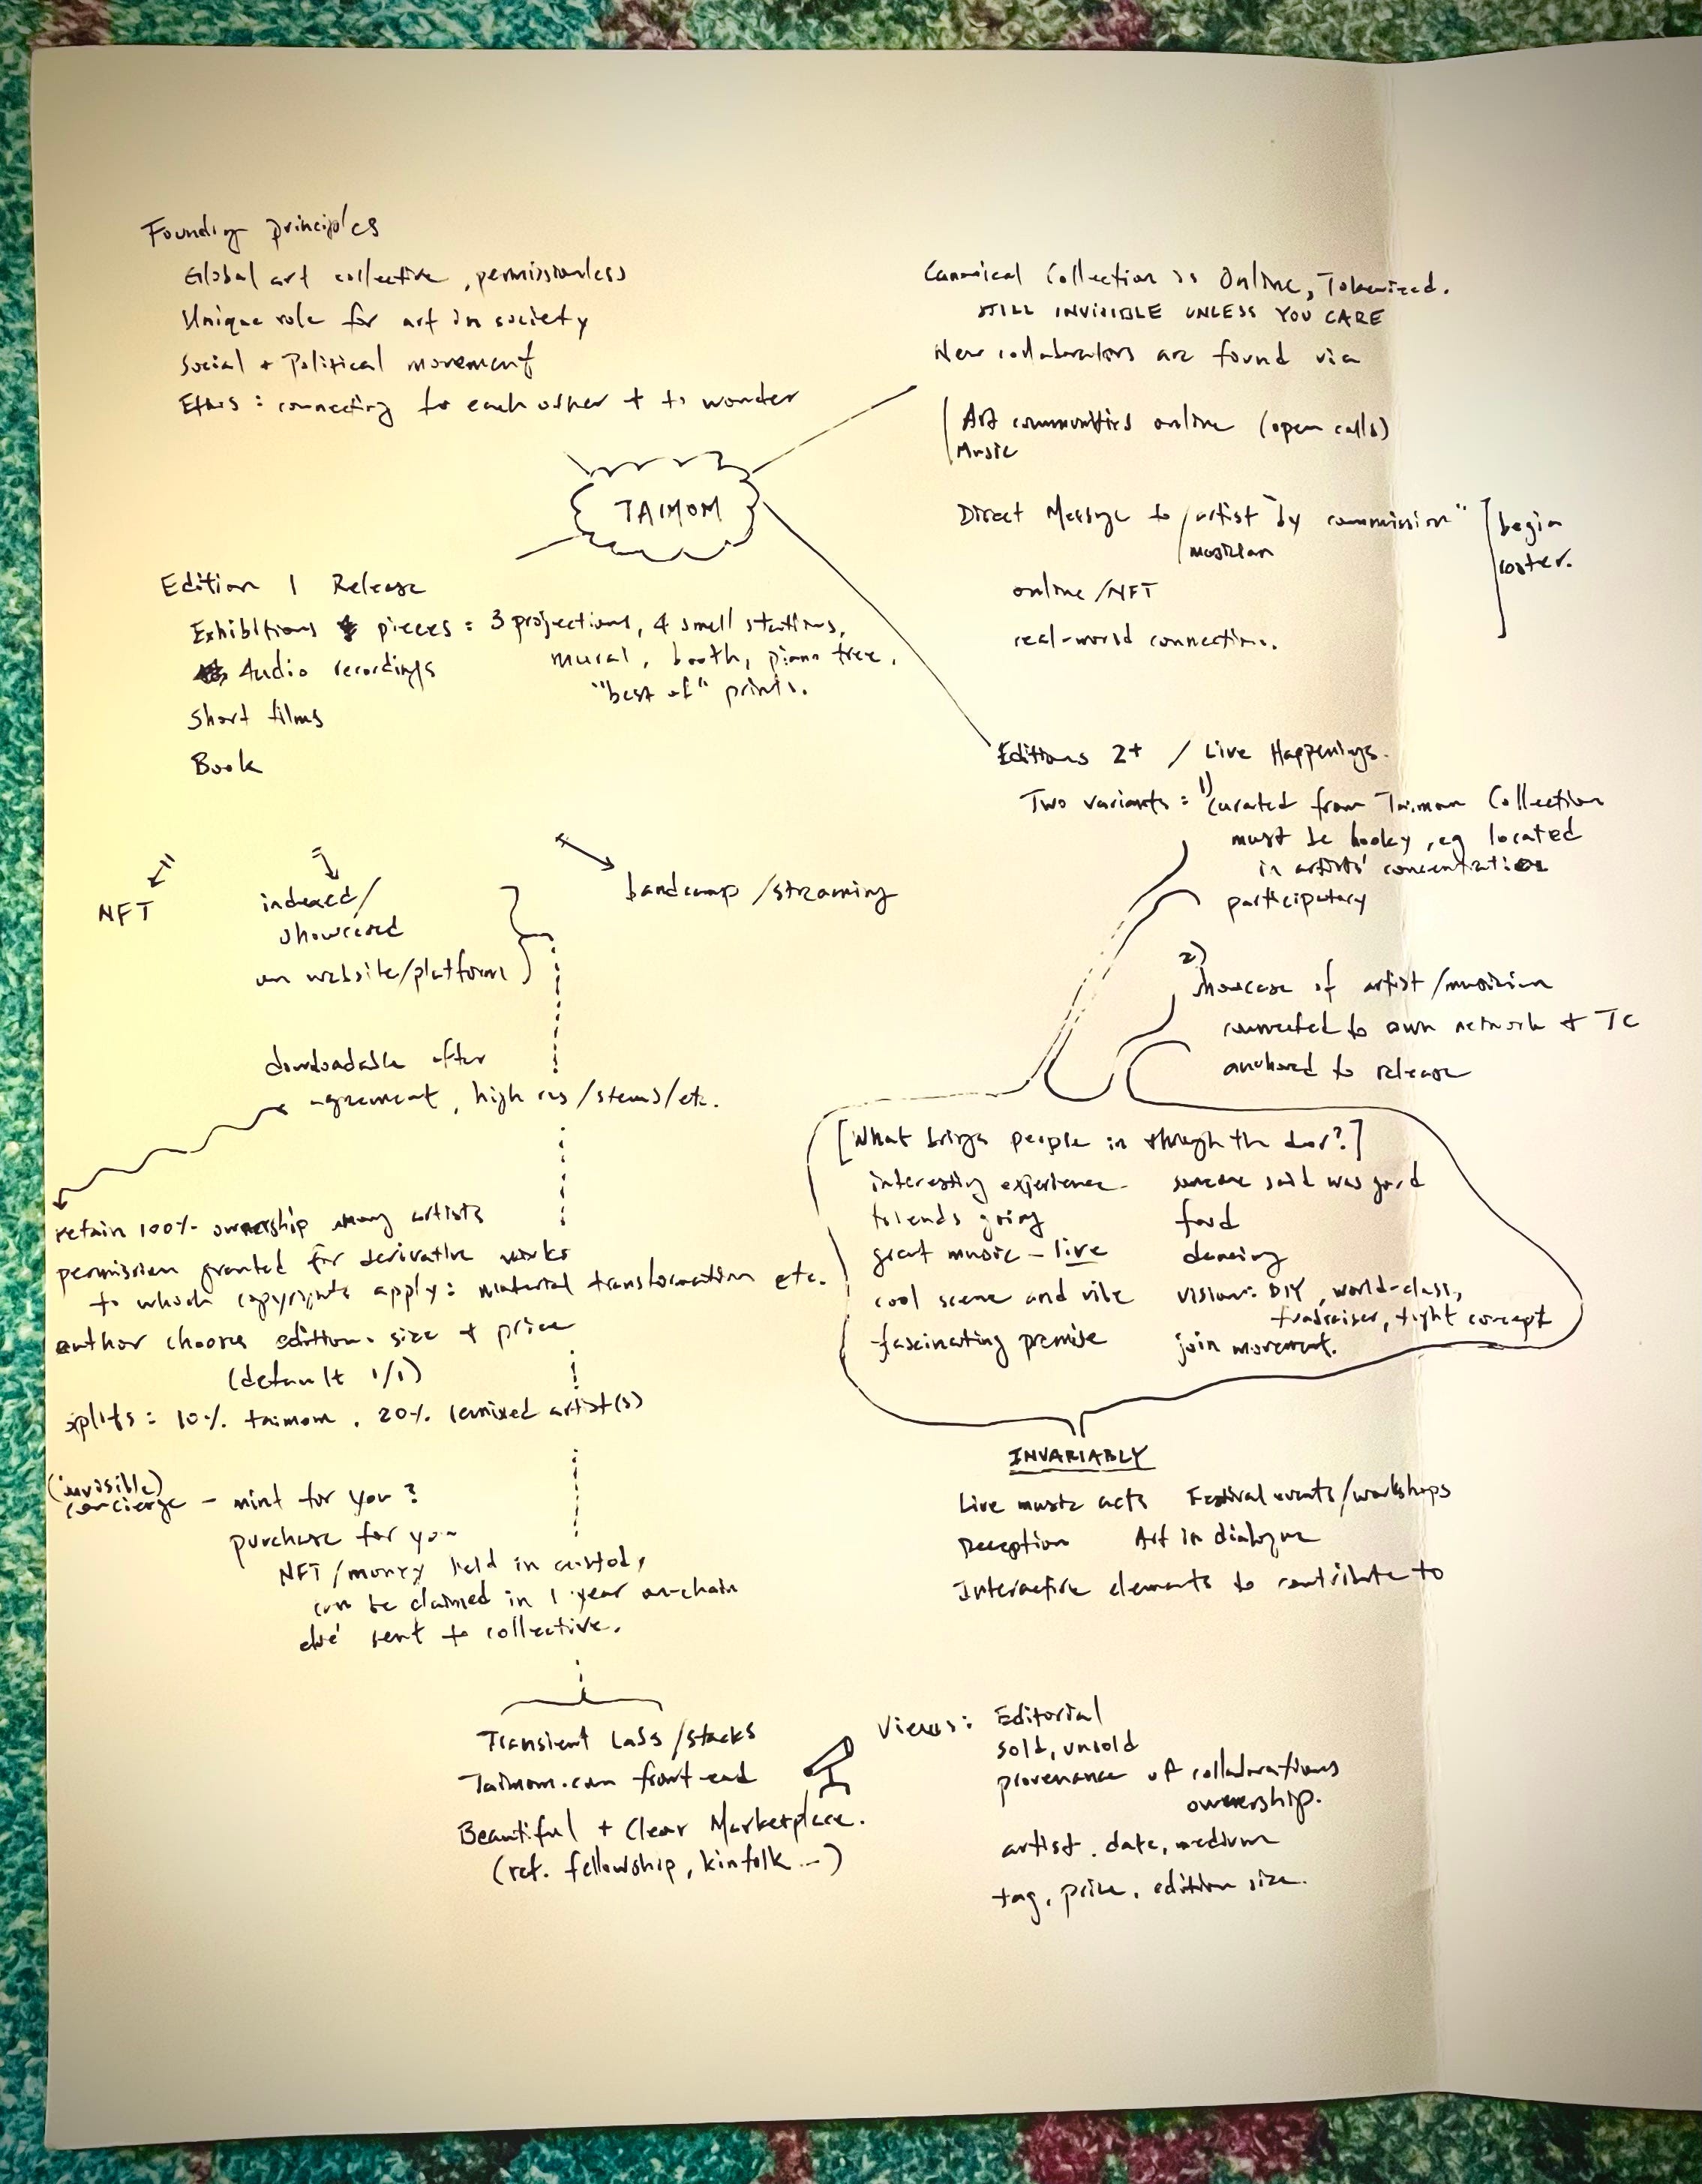 Founding principles
Global art collective, permissionless
Unique role for art in society
Social + Political movement
Ethos: connecting to each other + to wonder
TAIMOM
Edition 1 Release
Exhibitions pieces = 3 projections, 4 small stations,
mural, booth, piano tree,
"best of" prints.
Audio recordings
Short films
Book
NFT
indexed/
showcased
on website/platform
bandcamp/streaming
downloadable after
agreement, high res/stems/etc.
retain 100% ownership among artists
permission granted for derivative works
to which copyrights apply: material transformation etc.
author chooses edition size + price
(default 1/1)
splits: 10% taimom, 20% remixed artist(s)
(invisible)
concierge - mint for you?
purchase for you
NFT/money held in custody
can be claimed in 1 year on-chain
else sent to collective.
Transient Labs/stacks
Taimom.com front-end
Beautiful + Clear Marketplace.
(ref. fellowship, kinfolk...)
Canonical Collection is Online, Tokenized.
STILL INVISIBLE UNLESS YOU CARE
New collaborators are found via
Art communities online (open calls)
Music
Direct Message to artist "by commission"
musician
begin
roster.
online/NFT
real-world connection.
Editions 2+ / Live Happenings.
Two variants: 1) curated from Taimom Collection
must be hooky, eg located
in artists' concentration
participatory
2)
Showcase of artist/musician
connected to own network + TC
anchored to release
[What brings people in through the door?]
interesting experience someone said was good
friends going food
great music - live dancing
cool scene and vibe vision: DIY, world-class,
fundraiser, tight concept
fascinating premise join movement.
INVARIABLY
Live music acts Festival events/workshops
Reception Art in dialogue
Interactive elements to contribute to
Views: Editorial
sold, unsold
provenance of collaborations
ownership.
artist, date, medium
tag, price, edition size.